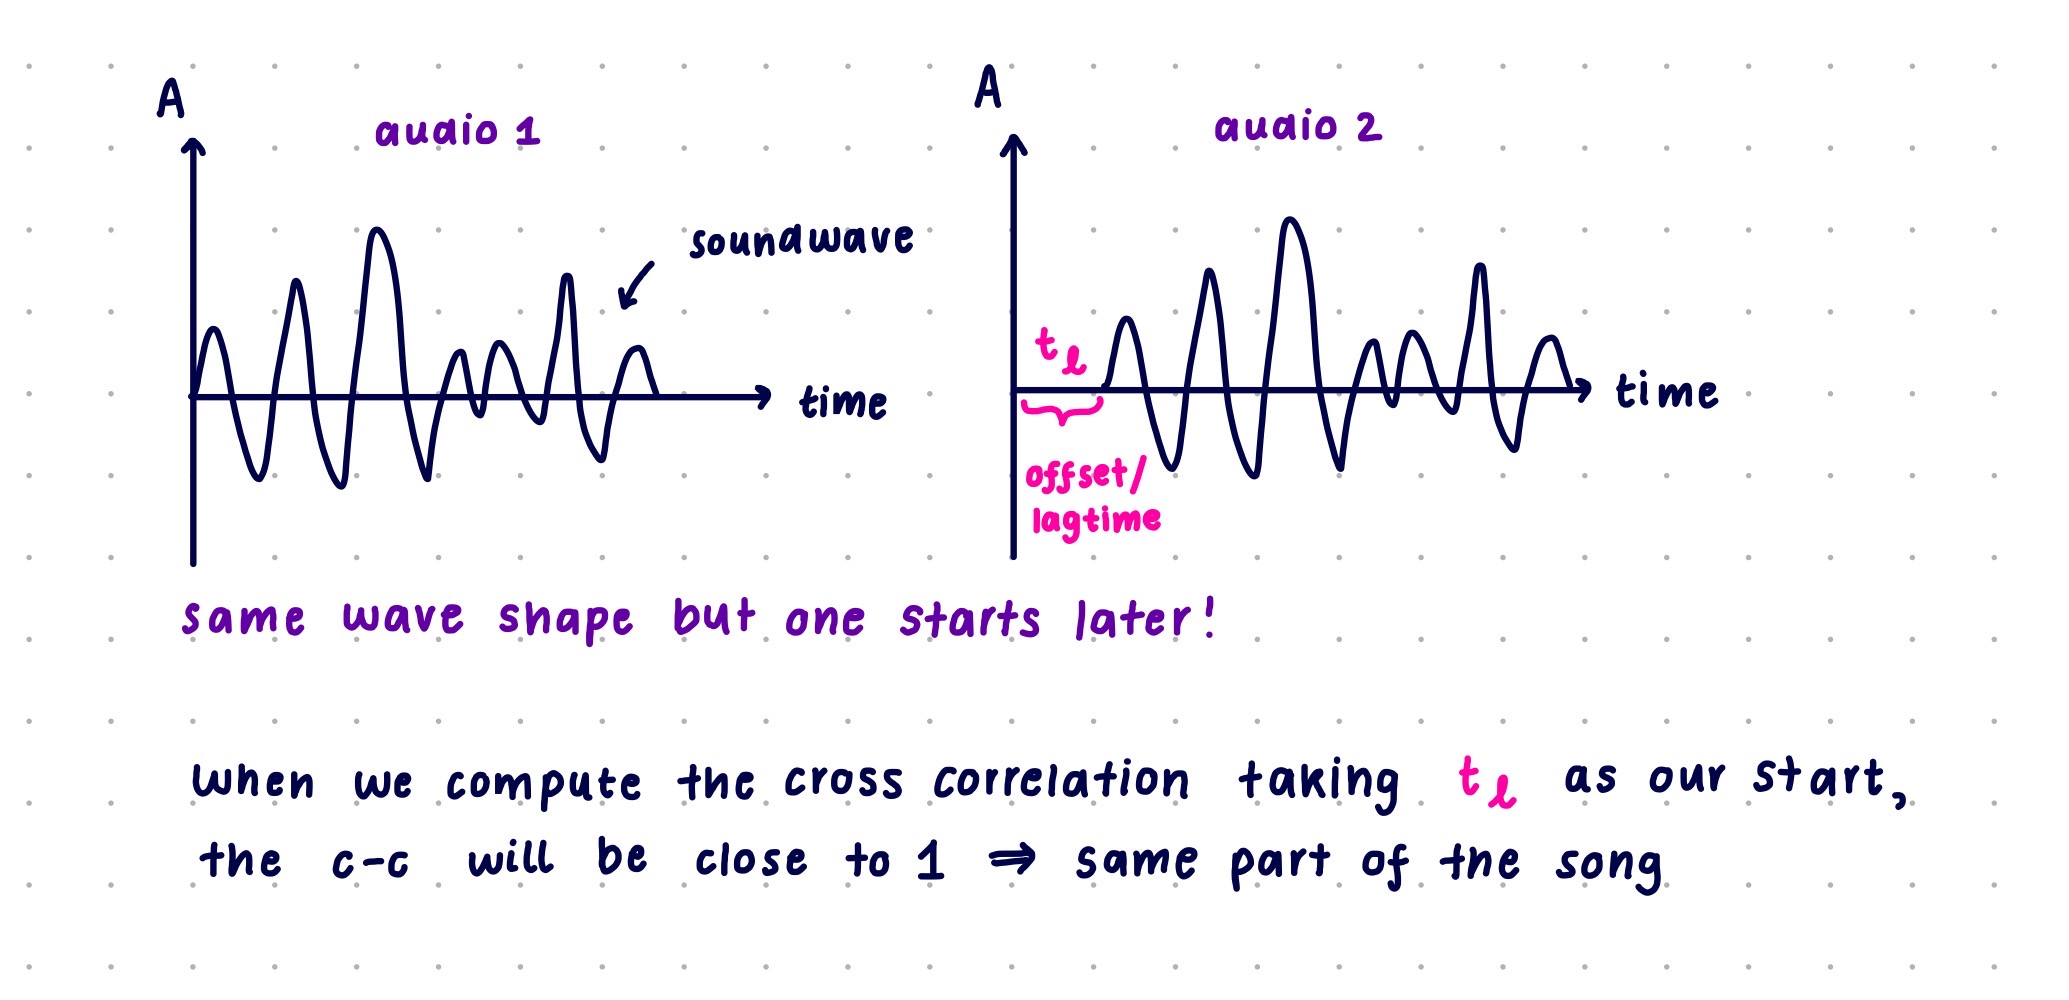 A
audio 1
soundwave
time
A
audio 2
t l
time
offset/
lagtime
same wave shape but one starts later!
when we compute the cross correlation taking t l as our start,
the c-c will be close to 1 ⇒ same part of the song